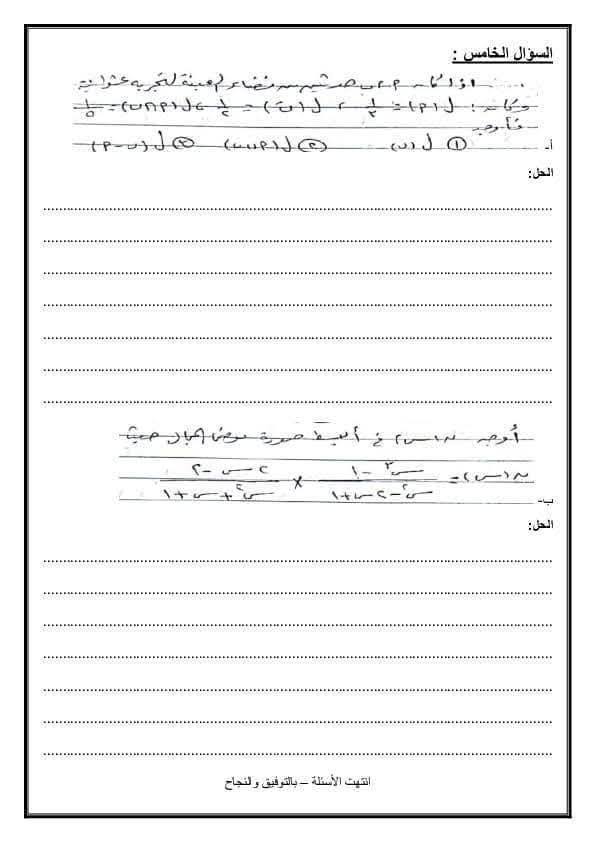 السؤال الخامس :
إذا كان م ، ب حدثين من فضاء العينة لتجربة عشوائية
وكان : ل(م) = ١/٣ ، ل(ب) = ١/٢ ، ل(م∩ب) = ١/٥
فأوجد
أ- ① ل(ب) ② ل(م∪ب) ③ ل(ب-م)
الحل:
أوجد ن(س) في أبسط صورة موضحاً المجال حيث
ب- ن(س) = س٣ - ١ / س٢ - ٢س + ١ × ٢س - ٢ / س٢ + س + ١
الحل:
انتهت الأسئلة – بالتوفيق والنجاح